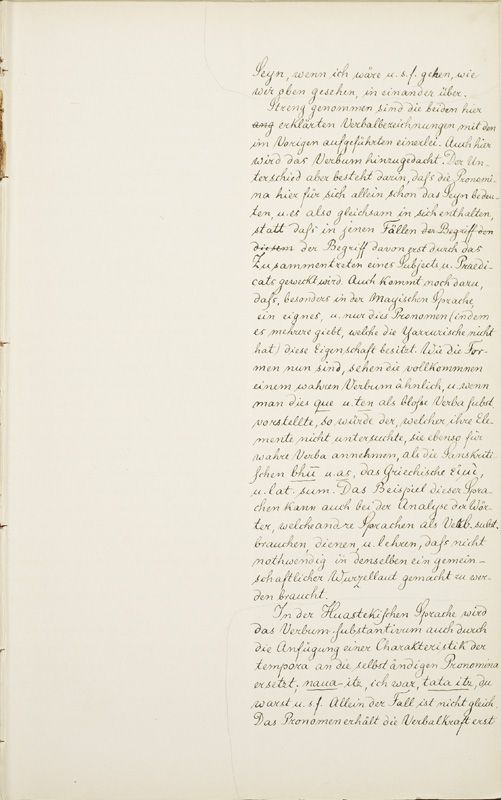 Seyn, wenn ich wäre u. s. f. gehen, wie
wir oben gesehen, in einander über.
Streng genommen sind die beiden hier
ang erklärten Verbalbezeichnungen mit den
im Vorigen aufgeführten einerlei. Auch hier
wird das Verbum hinzugedacht. Der Un-
terschied aber besteht darin, daſs die Pronomi-
na hier für sich allein schon das Seyn bedeu-
ten, u. es also gleichsam in sich enthalten,
statt daſs in jenen Fällen der Begriff den
diesem der Begriff davon erst durch das
Zusammentreten eines Subjects u. Praedi-
cats geweckt wird. Auch kommt noch dazu,
daſs, besonders in der Mayischen Sprache,
ein eignes, u. nur dies Pronomen (indem
es mehrere giebt, welche die Yarrurische nicht
hat) diese Eigenschaft besitzt. Wie die For-
men nun sind, sehen die vollkommnen
einem wahren Verbum ähnlich, u. wenn
man dies que u. ten als bloſse Verba subst.
vorstellte, so würde der, welcher ihre Ele-
mente nicht untersuchte, sie ebenso für
wahre Verba annehmen, als die Sanskriti-
schen bhū u. as, das Griechische
u. lat. sum. Das Beispiel dieser Spra-
chen kann auch bei der Analyse der Wör-
ter, welche andre Sprachen als Verb. subst.
brauchen, dienen, u. lehren, daſs nicht
nothwendig in denselben ein gemein-
schaftlicher Wurzellaut gemacht zu wer-
den braucht.
In der Huastekischen Sprache wird
das Verbum substantivum auch durch
die Anfügung einer Charakteristik der
tempora an die selbständigen Pronomina
ersetzt; naua-itz, ich war, tata itz, du
warst u. s. f. Allein der Fall ist nicht gleich.
Das Pronomen erhält die Verbalkraft erst